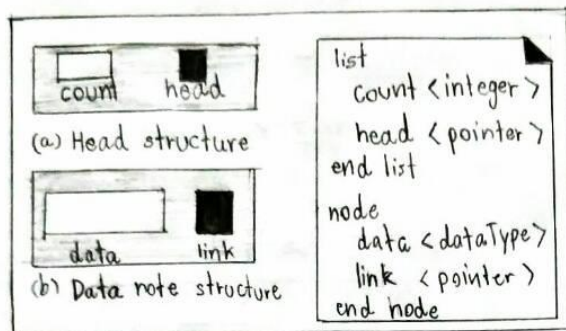 count head
(a) Head structure
data link
(b) Data note structure
list
count <integer>
head <pointer>
end list
node
data <dataType>
link <pointer>
end node